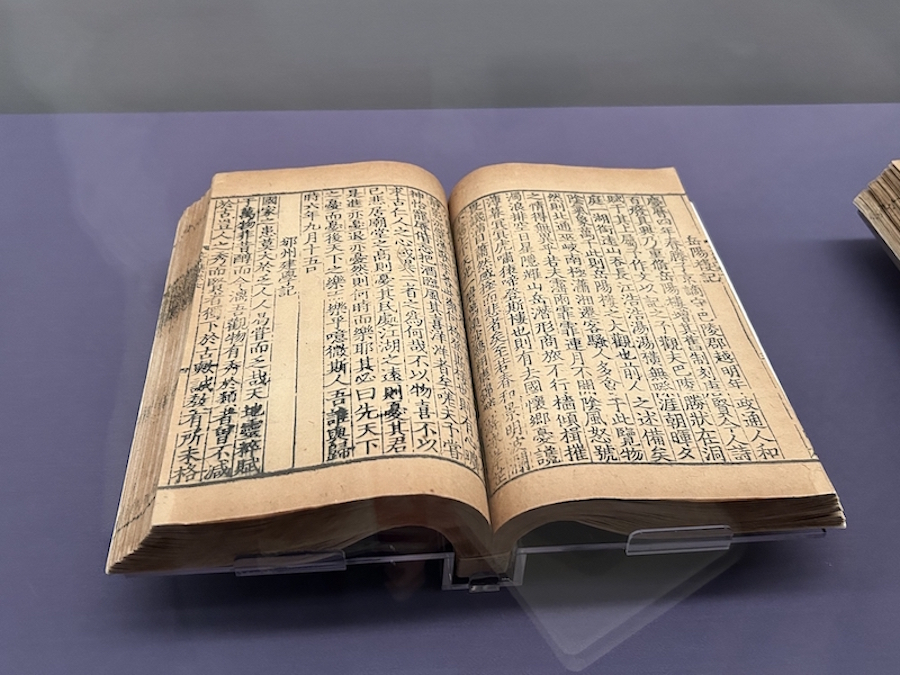 岳陽樓記
慶曆四年春滕子京謫守巴陵郡越明年政通人和
百廢具興乃重脩岳陽樓增其舊制刻唐賢今人詩
賦于其上屬予作文以記之予觀夫巴陵勝狀在洞
庭一湖銜遠山吞長江浩浩湯湯橫無際涯朝暉夕
陰氣象萬千此則岳陽樓之大觀也前人之述備矣
然則北通巫峽南極瀟湘遷客騷人多會于此覽物
之情得無異乎若夫霪雨霏霏連月不開陰風怒號
濁浪排空日星隱耀山岳潛形商旅不行檣傾楫摧
薄暮冥冥虎嘯猿啼登斯樓也則有去國懷鄉憂讒
者矣至若春和景明
神怡寵辱皆忘把酒臨風其喜洋洋者矣嗟夫予嘗
求古仁人之心或異二者之為何哉不以物喜不以
己悲居廟堂之高則憂其民處江湖之遠則憂其君
是進亦憂退亦憂然則何時而樂耶其必曰先天下
之憂而憂後天下之樂而樂乎噫微斯人吾誰與歸
時六年九月十五日
邠州建學記
國家之患莫大於乏人人曷嘗而乏哉天地靈粹賦
于萬物非昔醇而今漓吾觀物有秀於類者曾不減
於古豈人之秀而賢者獨下於古歟誠教有所未格